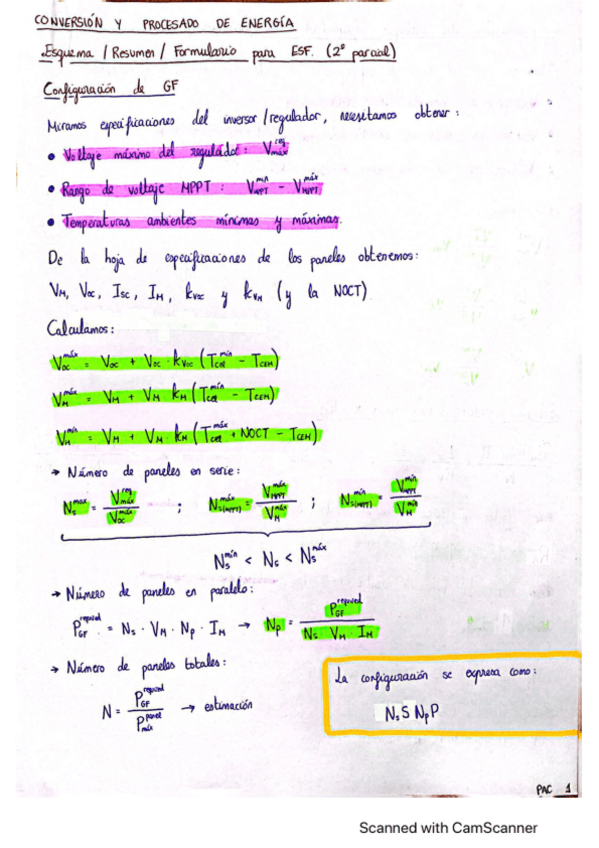 CONVERSIÓN Y PROCESADO DE ENERGÍA
Esquema / Resumen / Formulario para ESF. (2º parcial)
Configuración de GF
Miramos especificaciones del inversor/regulador, necesitamos obtener:
• Voltaje máximo del regulador: V_máx^reg
• Rango de voltaje MPPT: V_MPPT^mín - V_MPPT^máx
• Temperaturas ambientes mínimas y máximas.
De la hoja de especificaciones de los paneles obtenemos:
V_M, V_OC, I_SC, I_M, k_VOC y k_VM (y la NOCT)
Calculamos:
V_OC^máx = V_OC + V_OC · k_VOC (T_CEL^mín - T_CEM)
V_M^máx = V_M + V_M k_M (T_CEL^mín - T_CEM)
V_M^mín = V_M + V_M · k_M (T_CEL^máx + NOCT - T_CEM)
→ Número de paneles en serie:
N_S^max = V_máx^reg / V_OC^máx ; N_S(MPPT)^máx = V_MPPT^máx / V_M^máx ; N_S(MPPT)^mín = V_MPPT^mín / V_M^mín
N_S^mín < N_S < N_S^máx
→ Número de paneles en paralelo:
P_GF^required = N_S · V_M · N_P · I_M → N_P = P_GF^required / N_S V_M · I_M
→ Número de paneles totales:
N = P_GF^required / P_máx^panel → estimación
La configuración se expresa como:
N_S S N_P P
PAC 1
Scanned with CamScanner